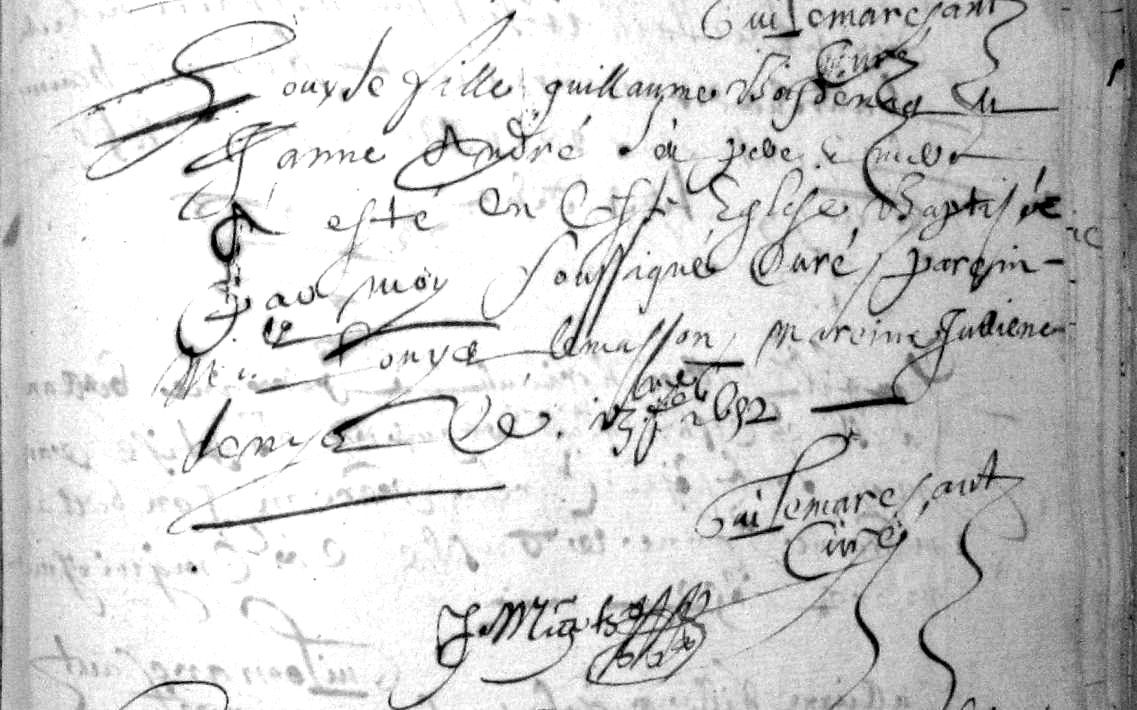 Guilemarchant
Curé
Louyse fille guillaume
Janne André ses pere & mere
A esté en Ceste Eglise Baptisée
par moy Soussigné Curé parain
Me Louys lemasson Mareine Julliene
denys Le 1652
Guilemarchant
Curé